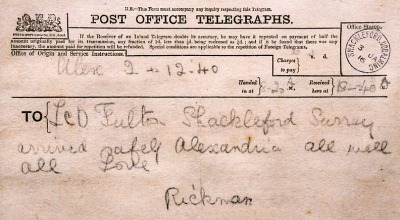 N.B.—This Form must accompany any inquiry respecting this Telegram.
POST OFFICE TELEGRAPHS.
If the Receiver of an Inland Telegram doubts its accuracy, he may have it repeated on payment of half the
amount originally paid for its transmission, any fraction of 1d. less than ½d. being reckoned as ½d.; and if it be found that there was any
inaccuracy, the amount paid for repetition will be refunded. Special conditions are applicable to the repetition of Foreign Telegrams.
Office of Origin and Service Instructions.
Office Stamp.
SHACKLEFORD
3 JA
16
Charges to pay
s. d.
Alex 2 + 12.40
Handed in at
Received here at
TO Ted Fulton Shackleford Surrey
arrived safely Alexandria all well
all love
Rickman